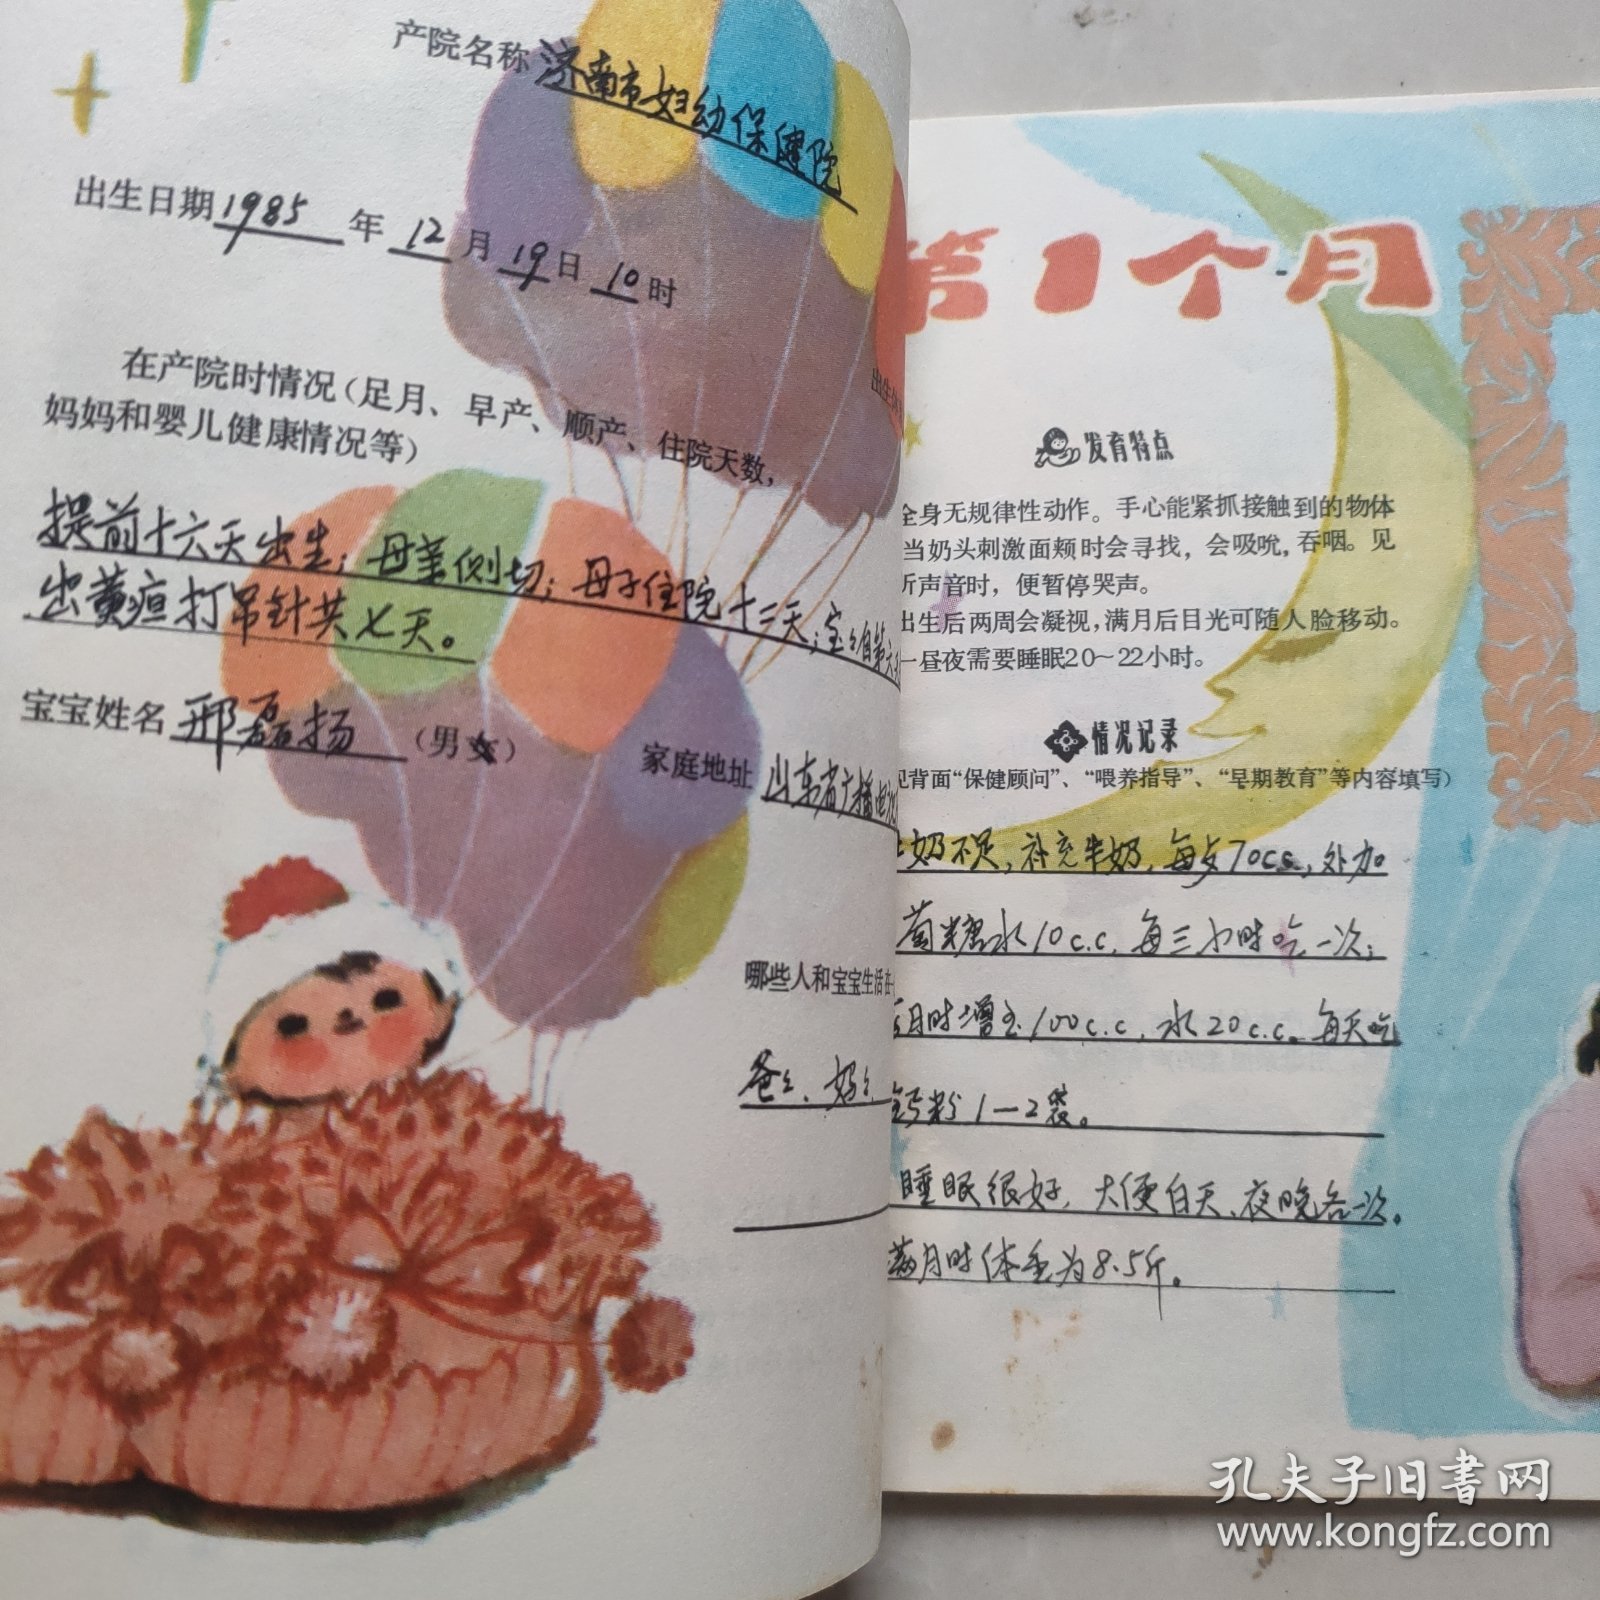 产院名称 济南市妇幼保健院
出生日期1985年12月19日10时
在产院时情况（足月、早产、顺产、住院天数，
妈妈和婴儿健康情况等）
提前十六天出生；母亲侧切；母子住院十二天；宝宝自第六
出黄疸打吊针共七天。
宝宝姓名 邢磊扬 （男女）
家庭地址 山东省广播电视
哪些人和宝宝生活在
爸爸、妈妈
出生
第1个月
发育特点
全身无规律性动作。手心能紧抓接触到的物体
当奶头刺激面颊时会寻找，会吸吮，吞咽。见
听声音时，便暂停哭声。
出生后两周会凝视，满月后目光可随人脸移动。
一昼夜需要睡眠20～22小时。
情况记录
见背面“保健顾问”、“喂养指导”、“早期教育”等内容填写）
奶不足，补充牛奶，每次70c.c.，外加
萄糖水10c.c.，每三小时吃一次；
月时增至100c.c.，水20c.c.。每天吃
钙粉1—2袋。
睡眠很好，大便白天、夜晚各一次。
满月时体重为8.5斤。
孔夫子旧书网
www.kongfz.com